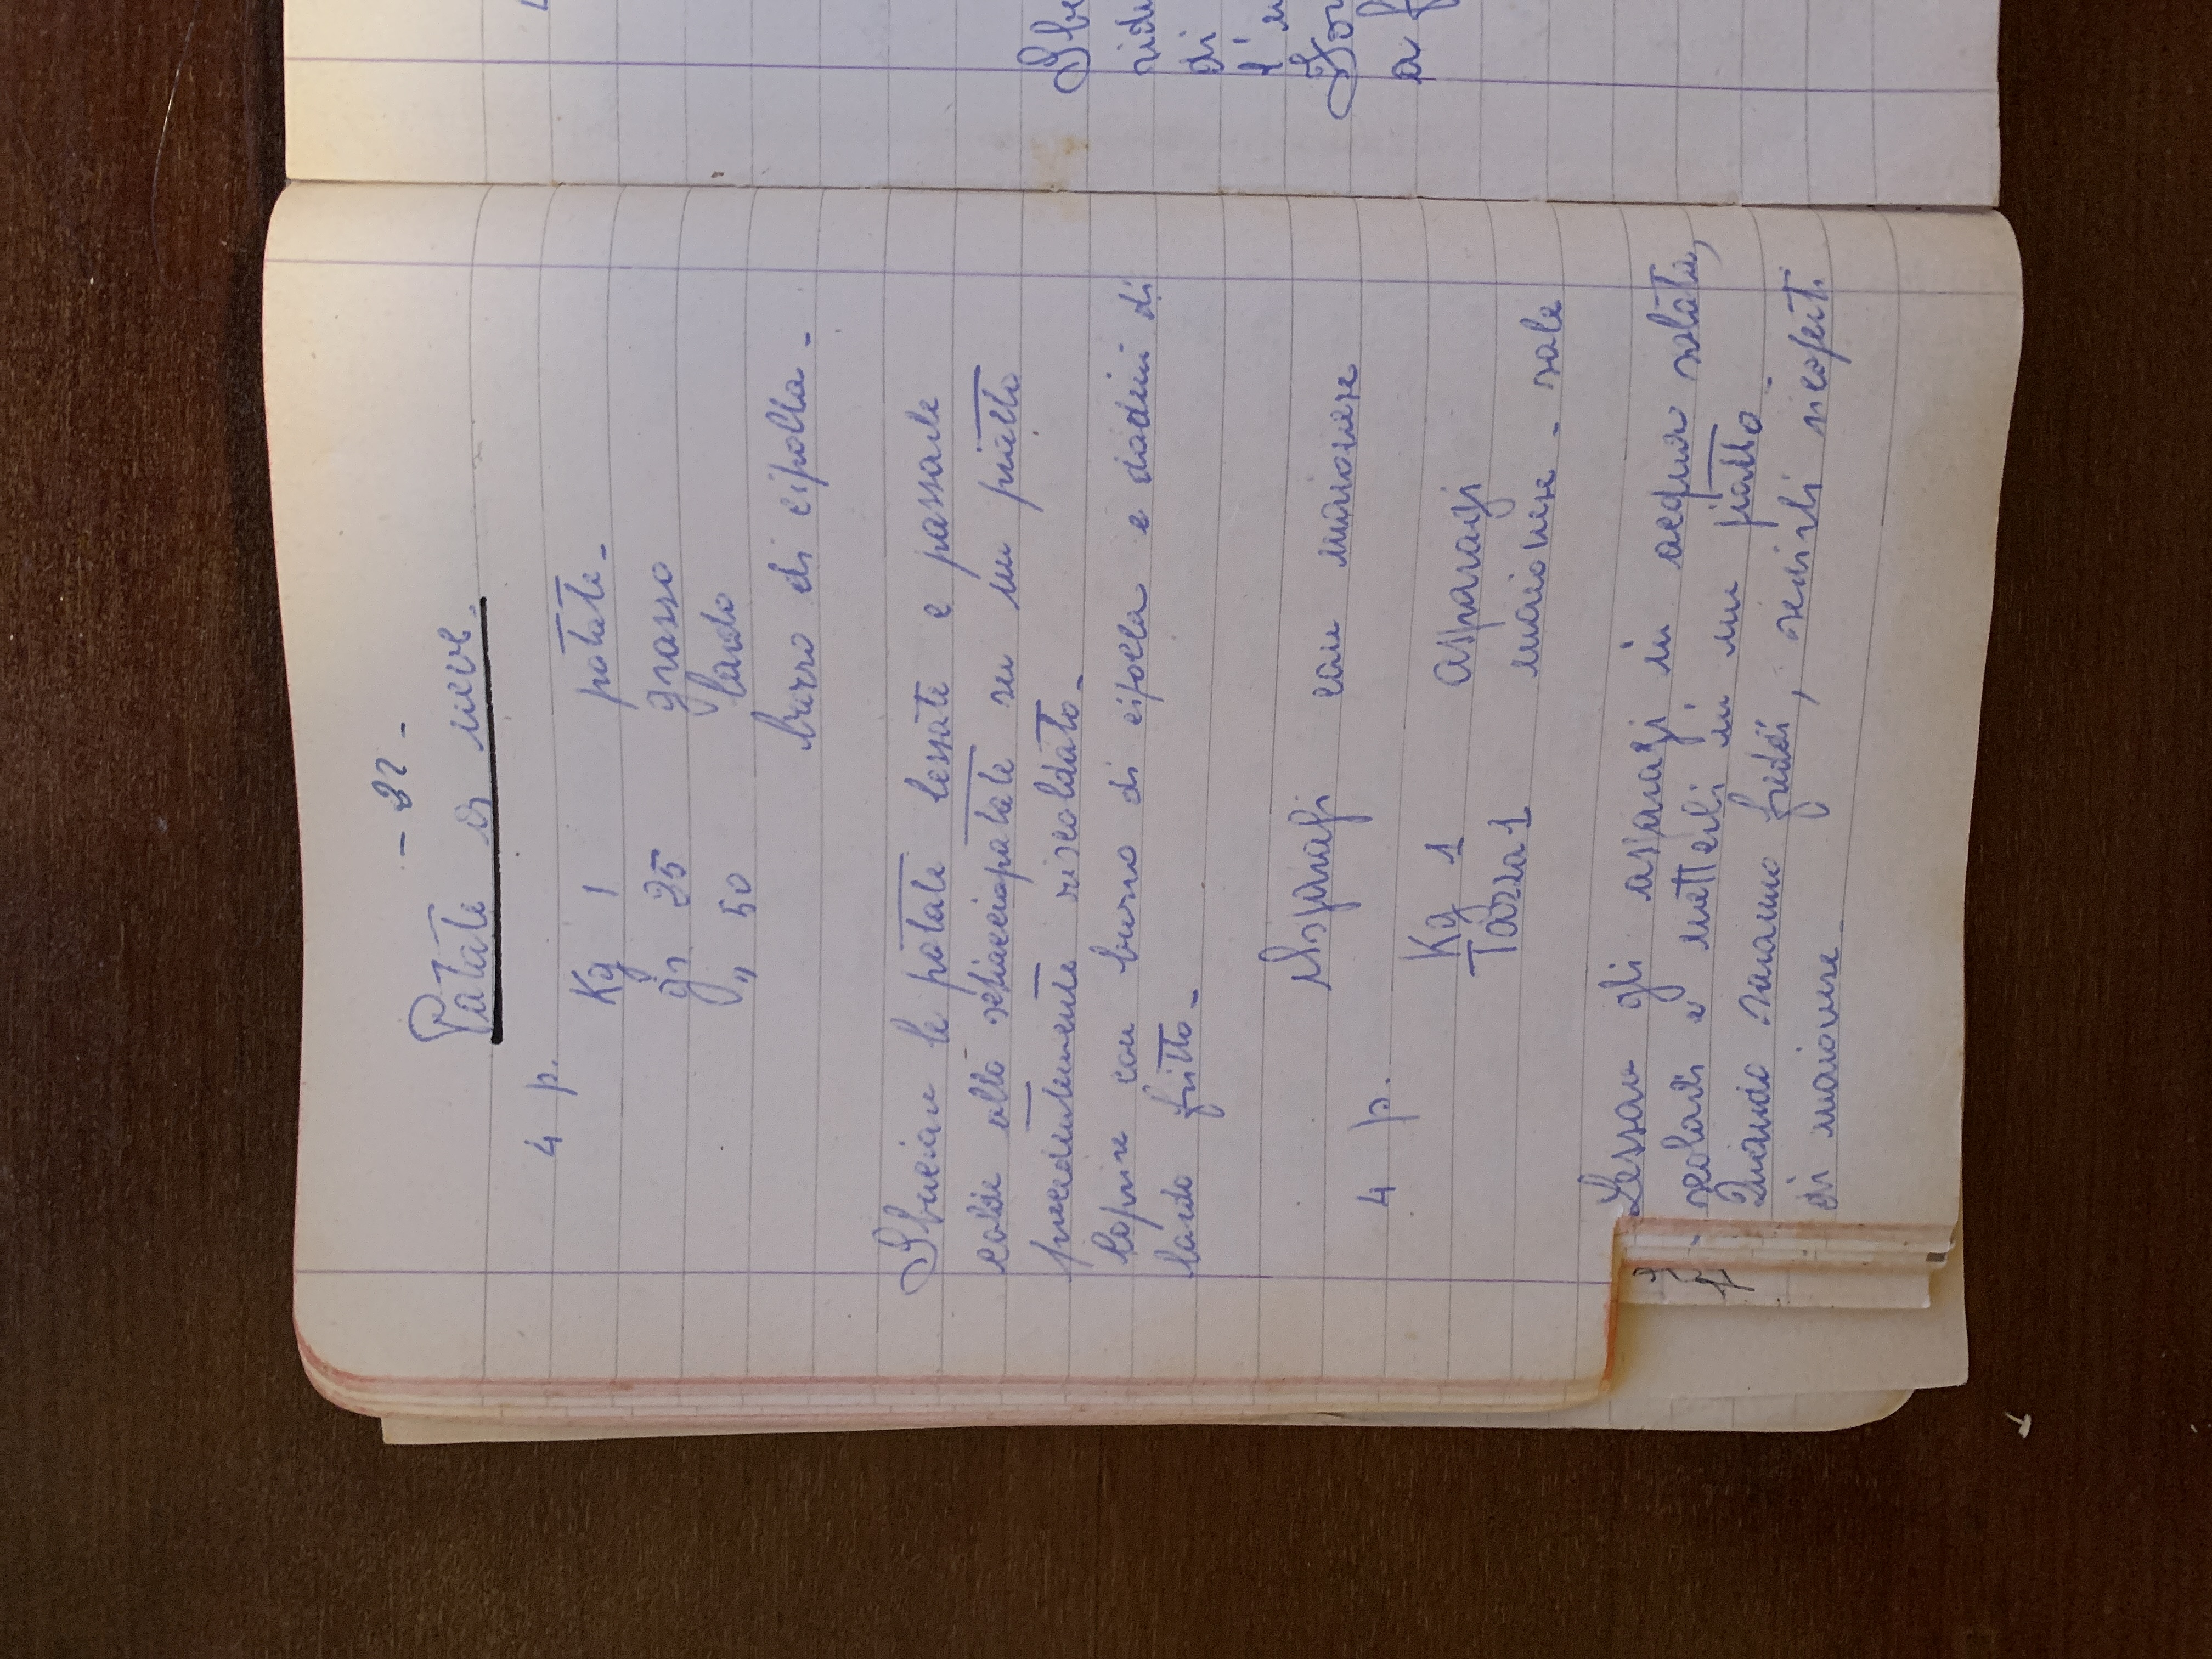 - 22 -
Patate a neve.
4 p.
Kg 1 patate -
gr. 25 grasso
" 50 lardo
burro di cipolla -
Sbucciare le patate lessate e passarle
calde allo schiacciapatate su un piatto
precedentemente riscaldato -
Coprire con burro di cipolla e dadini di
lardo fritto -
Asparagi con maionese
4 p.
Kg 1 asparagi
Tazza 1 maionese - sale
Lessare gli asparagi in acqua salata,
scolarli e metterli in un piatto -
Quando saranno freddi, servirli ricoperti
di maionese -
Sbu
ridu
di
l'
a f